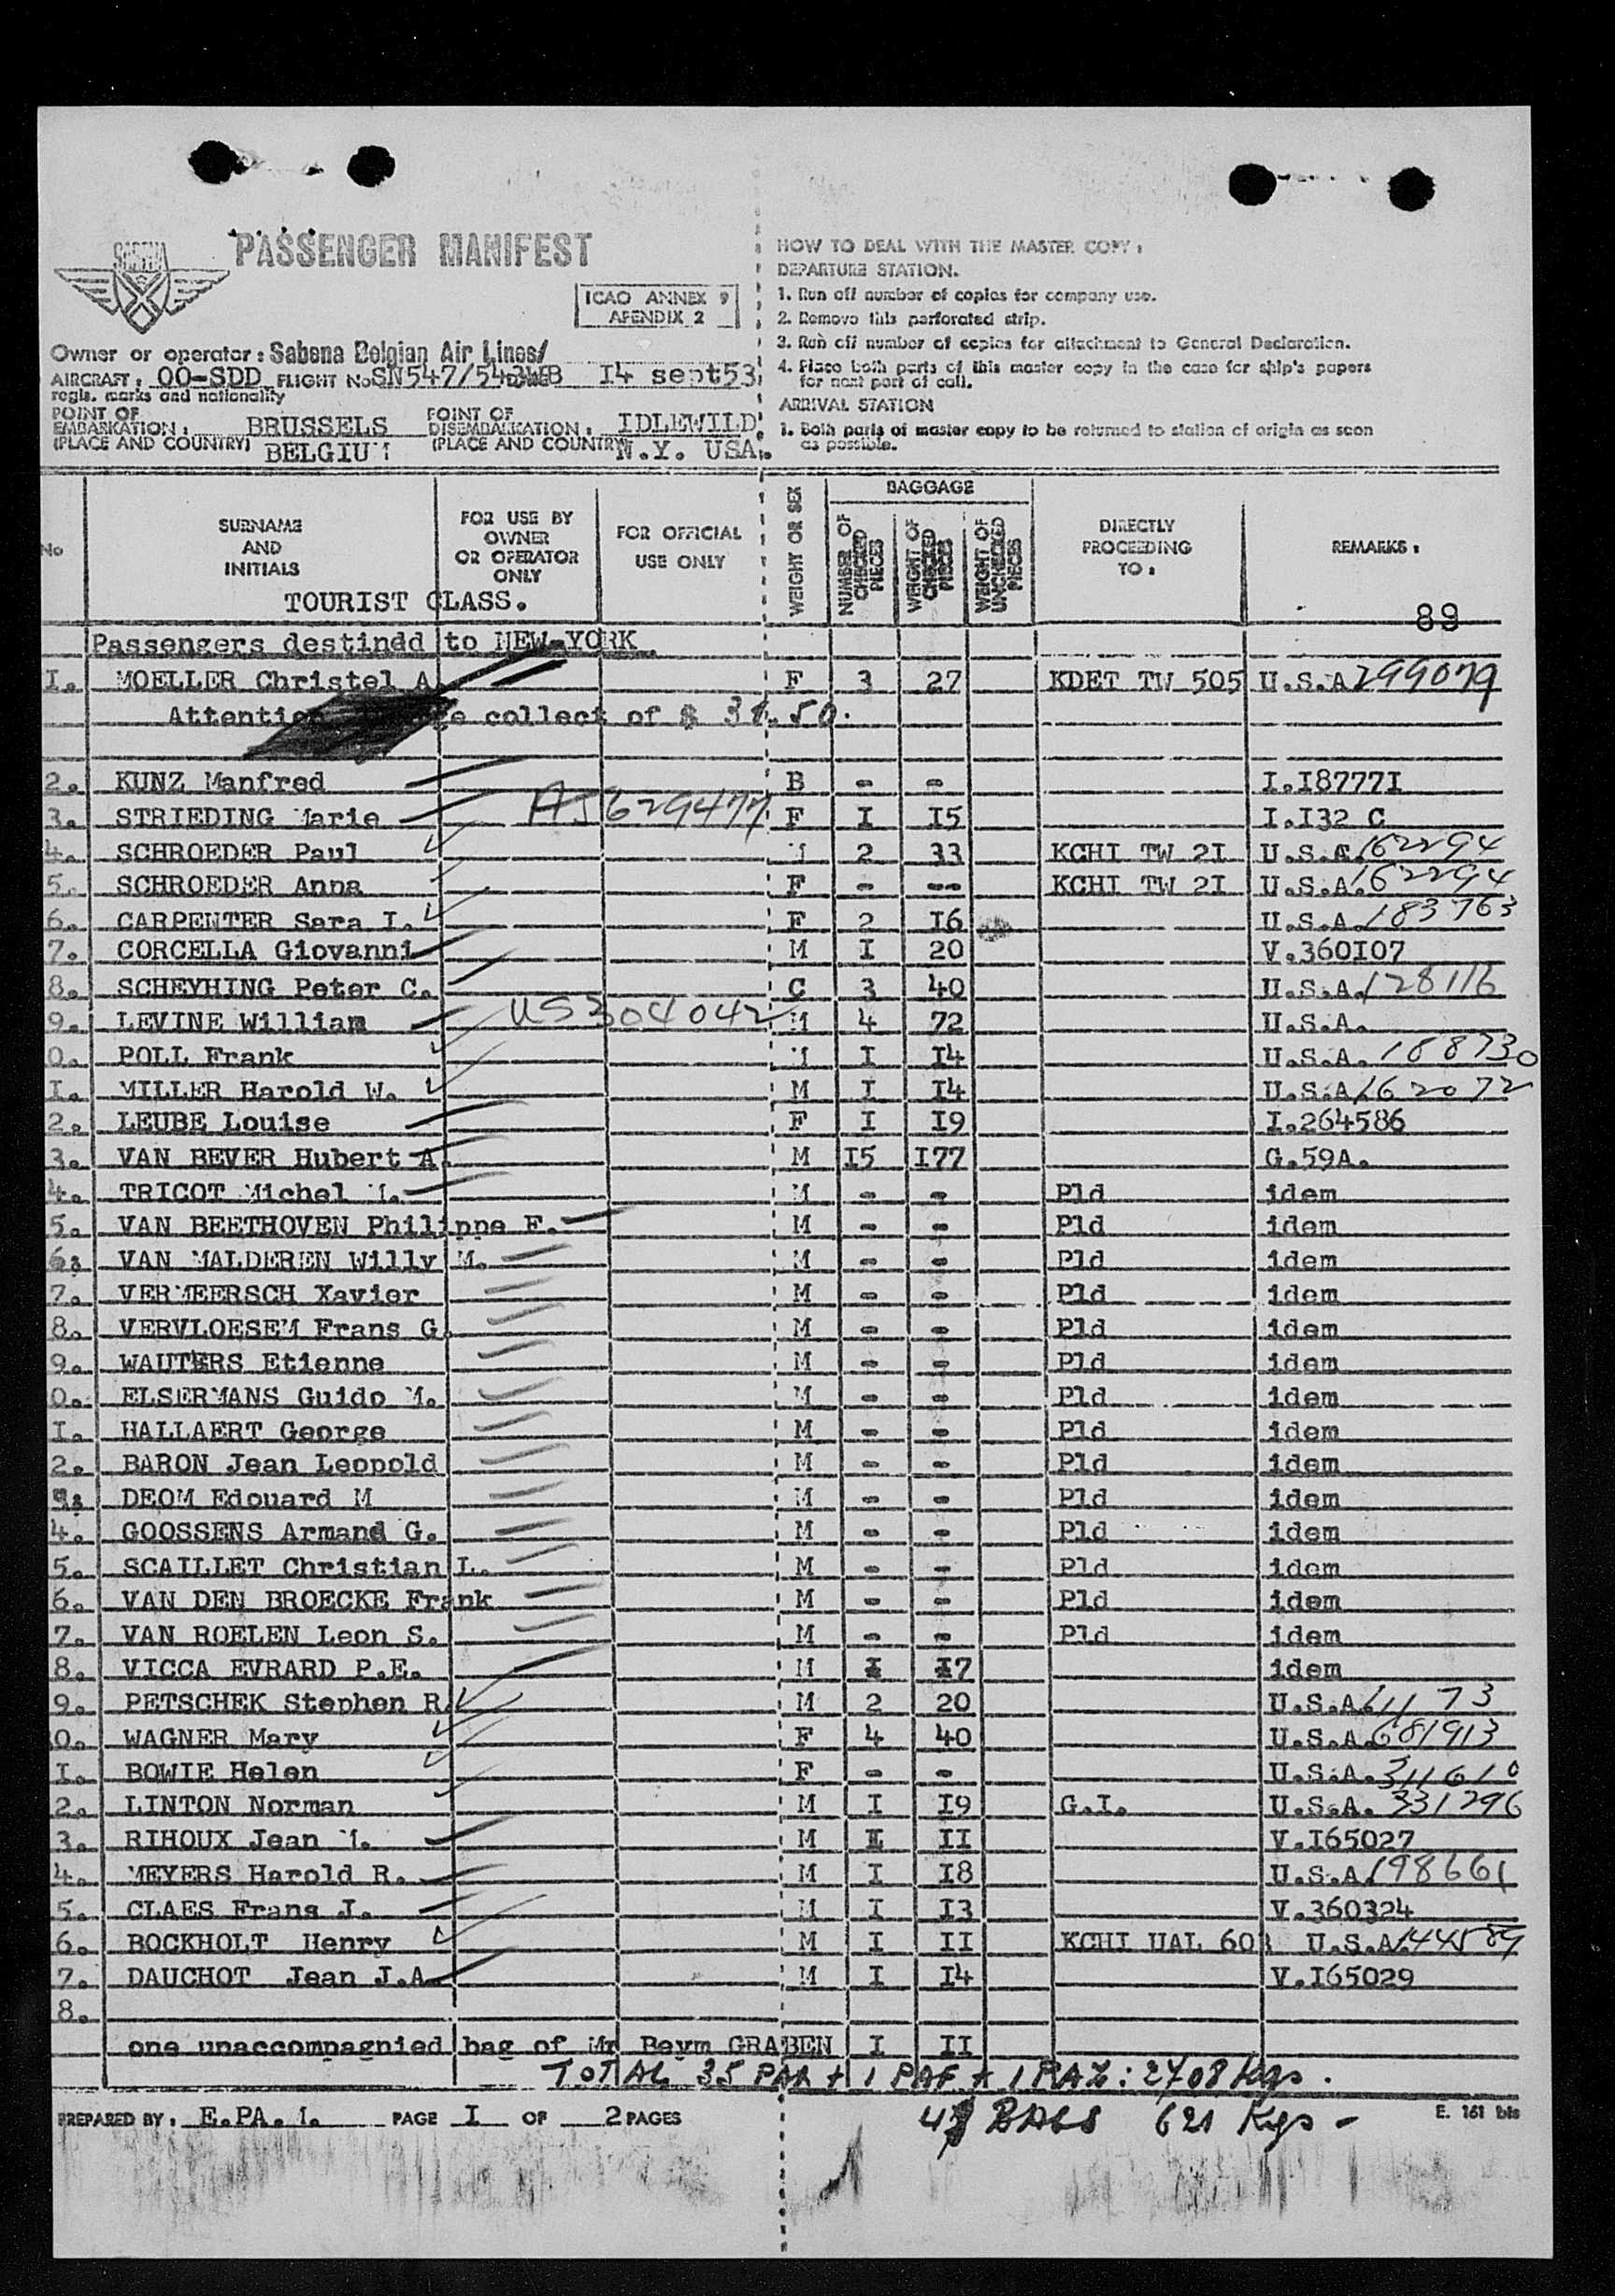 SABENA
PASSENGER MANIFEST
ICAO ANNEX 9
APENDIX 2
Owner or operator: Sabena Belgian Air Lines/
AIRCRAFT: OO-SDD FLIGHT No SN547/548 14 sept53
regis. marks and nationality
POINT OF EMBARKATION: BRUSSELS
(PLACE AND COUNTRY) BELGIUM
POINT OF DISEMBARKATION: IDLEWILD
(PLACE AND COUNTRY) N.Y. USA.
HOW TO DEAL WITH THE MASTER COPY:
DEPARTURE STATION.
1. Run off number of copies for company use.
2. Remove this perforated strip.
3. Run off number of copies for attachment to General Declaration.
4. Place both parts of this master copy in the case for ship's papers
for next port of call.
ARRIVAL STATION
1. Both parts of master copy to be returned to station of origin as soon
as possible.
No
SURNAME AND INITIALS
FOR USE BY OWNER OR OPERATOR ONLY
FOR OFFICIAL USE ONLY
WEIGHT OR SEX
BAGGAGE
NUMBER OF CHECKED PIECES
WEIGHT OF CHECKED PIECES
WEIGHT OF UNCHECKED PIECES
DIRECTLY PROCEEDING TO:
REMARKS:
TOURIST CLASS.
89
Passengers destindd to NEW-YORK
I. MOELLER Christel A. F 3 27 KDET TW 505 U.S.A 299079
Attention collect of $ 50.
2. KUNZ Manfred B - - I.I8777I
3. STRIEDING Marie AJ629477 F I I5 I.I32 C
4. SCHROEDER Paul M 2 33 KCHI TW 2I U.S.A. 162294
5. SCHROEDER Anna F - -- KCHI TW 2I U.S.A. 162294
6. CARPENTER Sara I. F 2 I6 U.S.A. 183763
7. CORCELLA Giovanni M I 20 V.360I07
8. SCHEYHING Peter C. C 3 40 U.S.A. 128116
9. LEVINE William US304042 M 4 72 U.S.A.
0. POLL Frank M I I4 U.S.A. 188730
I. MILLER Harold W. M I I4 U.S.A. 162072
2. LEUBE Louise F I I9 I.264586
3. VAN BEVER Hubert A. M I5 I77 G.59A.
4. TRICOT Michel M. M - - Pld idem
5. VAN BEETHOVEN Philippe F. M - - Pld idem
6. VAN MALDEREN Willy M. M - - Pld idem
7. VERMEERSCH Xavier M - - Pld idem
8. VERVLOESEM Frans G. M - - Pld idem
9. WAUTERS Etienne M - - Pld idem
0. ELSERMANS Guido M. M - - Pld idem
I. HALLAERT George M - - Pld idem
2. BARON Jean Leopold M - - Pld idem
3. DEOM Edouard M M - - Pld idem
4. GOOSSENS Armand G. M - - Pld idem
5. SCAILLET Christian L. M - - Pld idem
6. VAN DEN BROECKE Frank M - - Pld idem
7. VAN ROELEN Leon S. M - - Pld idem
8. VICCA EVRARD P.E. M I I7 idem
9. PETSCHEK Stephen R. M 2 20 U.S.A. 61173
0. WAGNER Mary F 4 40 U.S.A. 681913
I. BOWIE Helen F - - U.S.A. 311610
2. LINTON Norman M I I9 G.I. U.S.A. 331296
3. RIHOUX Jean M. M I II V.I65027
4. MEYERS Harold R. M I I8 U.S.A. 198661
5. CLAES Frans J. M I I3 V.360324
6. BOCKHOLT Henry M I II KCHI UAL 60 U.S.A. 144589
7. DAUCHOT Jean J.A. M I I4 V.I65029
8.
one unaccompagnied bag of Mr Beym GRABEN I II
TOTAL 35 PAX + 1 PAF + 1 PAZ: 2708 Kgs.
PREPARED BY: E.PA. PAGE I OF 2 PAGES
BAGS 621 Kgs -
E. 161 bis